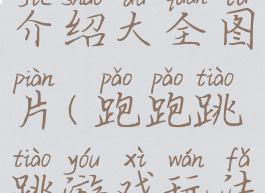 jiè shào dà quán tú
介绍大全图
piàn pǎo pǎo tiào
片(跑跑跳
tiào yóu xì wán fǎ
跳游戏玩法